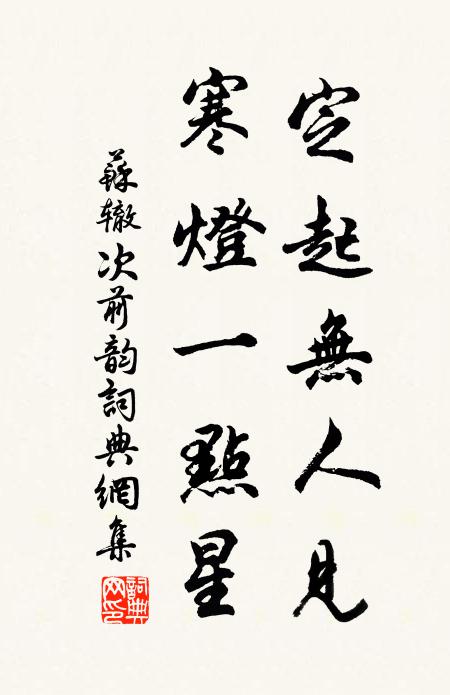 定起無人見
寒燈一點星
蘇辙次前韵詞典網集
詞典网印